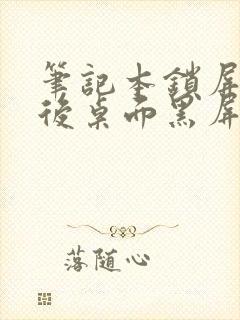 筆記本鎖屏
後桌面黑屏
落随心